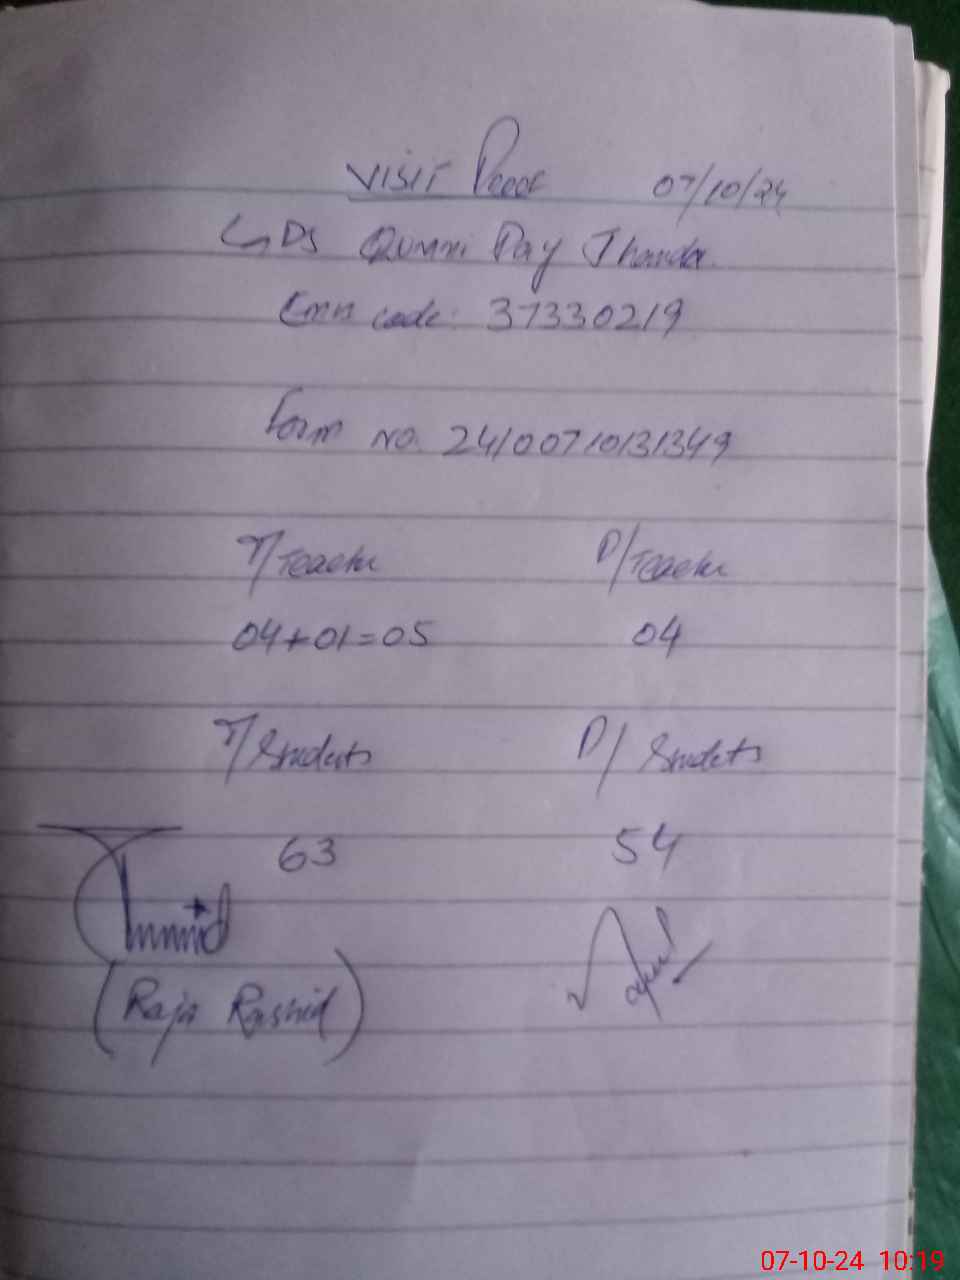 VISIT Proof 07/10/24
GDS Qunmi Pay Thanda
Emn code: 37330219
Form no. 24/00710131349
T/Teacher P/Teacher
04+01=05 04
T/Students P/Students
63 54
(Raja Rashid)
07-10-24 10:19